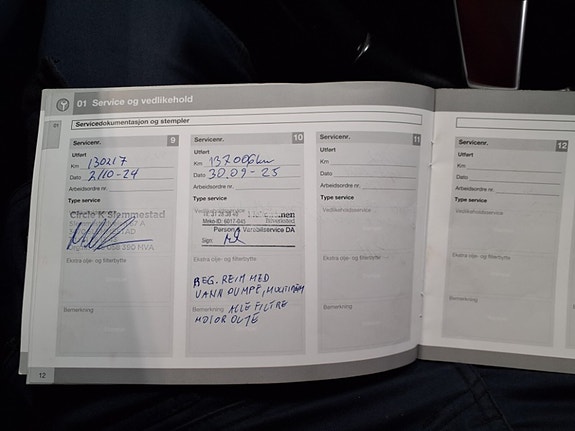 01 Service og vedlikehold
01
Servicedokumentasjon og stempler
Servicenr. 9
Utført
Km 130217
Dato 2/10-24
Arbeidsordre nr.
Type service
Circle K Slemmestad
Ekstra olje- og filterbytte
Bemerkning
Servicenr. 10
Utført
Km 137006km
Dato 30.09-25
Arbeidsordre nr.
Type service
Sign:
Ekstra olje- og filterbytte
REG. REIM MED
VANN PUMPE, MULTIREM
Bemerkning ALLE FILTRE
MOTOR OLJE
Servicenr. 11
Utført
Km
Dato
Arbeidsordre nr.
Type service
Vedlikeholdsservice
Ekstra olje- og filterbytte
Bemerkning
Servicenr. 12
Utført
Km
Dato
Arbeidsordre nr.
Type service
Vedlikeholdsservice
Ekstra olje- og filterbytte
Bemerkning
12